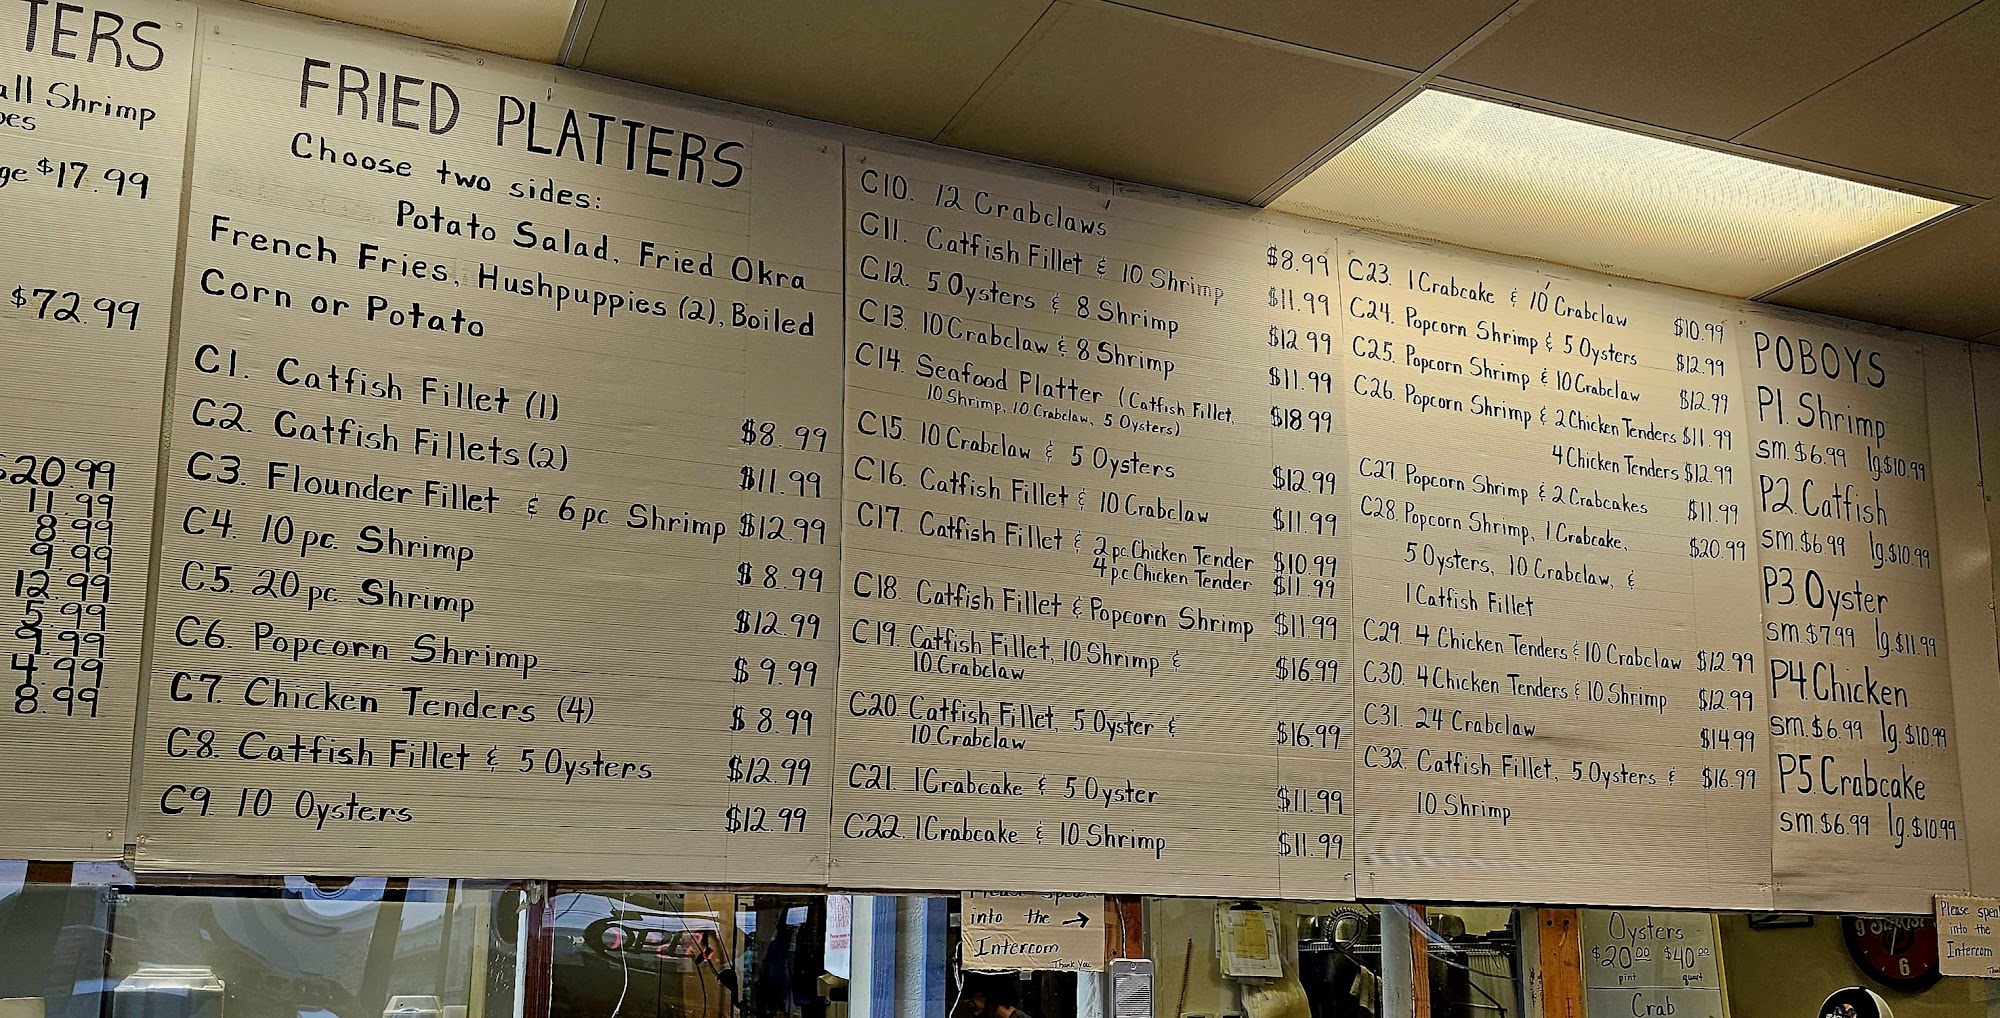 TERS
all Shrimp
ge $17.99
$72.99
$20.99
11.99
8.99
9.99
12.99
5.99
9.99
4.99
8.99
FRIED PLATTERS
Choose two sides:
Potato Salad, Fried Okra
French Fries, Hushpuppies (2), Boiled
Corn or Potato
C1. Catfish Fillet (1) $8.99
C2. Catfish Fillets (2) $11.99
C3. Flounder Fillet & 6 pc. Shrimp $12.99
C4. 10 pc. Shrimp $8.99
C5. 20 pc. Shrimp $12.99
C6. Popcorn Shrimp $9.99
C7. Chicken Tenders (4) $8.99
C8. Catfish Fillet & 5 Oysters $12.99
C9. 10 Oysters $12.99
C10. 12 Crabclaws $8.99
C11. Catfish Fillet & 10 Shrimp $11.99
C12. 5 Oysters & 8 Shrimp $12.99
C13. 10 Crabclaw & 8 Shrimp $11.99
C14. Seafood Platter (Catfish Fillet, $18.99
10 Shrimp, 10 Crabclaw, 5 Oysters)
C15. 10 Crabclaw & 5 Oysters $12.99
C16. Catfish Fillet & 10 Crabclaw $11.99
C17. Catfish Fillet & 2 pc. Chicken Tender $10.99
4 pc Chicken Tender $11.99
C18. Catfish Fillet & Popcorn Shrimp $11.99
C19. Catfish Fillet, 10 Shrimp & $16.99
10 Crabclaw
C20. Catfish Fillet, 5 Oyster & $16.99
10 Crabclaw
C21. 1 Crabcake & 5 Oyster $11.99
C22. 1 Crabcake & 10 Shrimp $11.99
C23. 1 Crabcake & 10 Crabclaw $10.99
C24. Popcorn Shrimp & 5 Oysters $12.99
C25. Popcorn Shrimp & 10 Crabclaw $12.99
C26. Popcorn Shrimp & 2 Chicken Tenders $11.99
4 Chicken Tenders $12.99
C27. Popcorn Shrimp & 2 Crabcakes $11.99
C28. Popcorn Shrimp, 1 Crabcake, $20.99
5 Oysters, 10 Crabclaw, &
1 Catfish Fillet
C29. 4 Chicken Tenders & 10 Crabclaw $12.99
C30. 4 Chicken Tenders & 10 Shrimp $12.99
C31. 24 Crabclaw $14.99
C32. Catfish Fillet, 5 Oysters & $16.99
10 Shrimp
POBOYS
P1. Shrimp
sm. $6.99 lg. $10.99
P2. Catfish
sm. $6.99 lg. $10.99
P3. Oyster
sm. $7.99 lg. $11.99
P4. Chicken
sm. $6.99 lg. $10.99
P5. Crabcake
sm. $6.99 lg. $10.99
into the →
Intercom
Thank You
Oysters
$20.00 $40.00
pint quart
Crab
9
6
Please speak
into the
Intercom